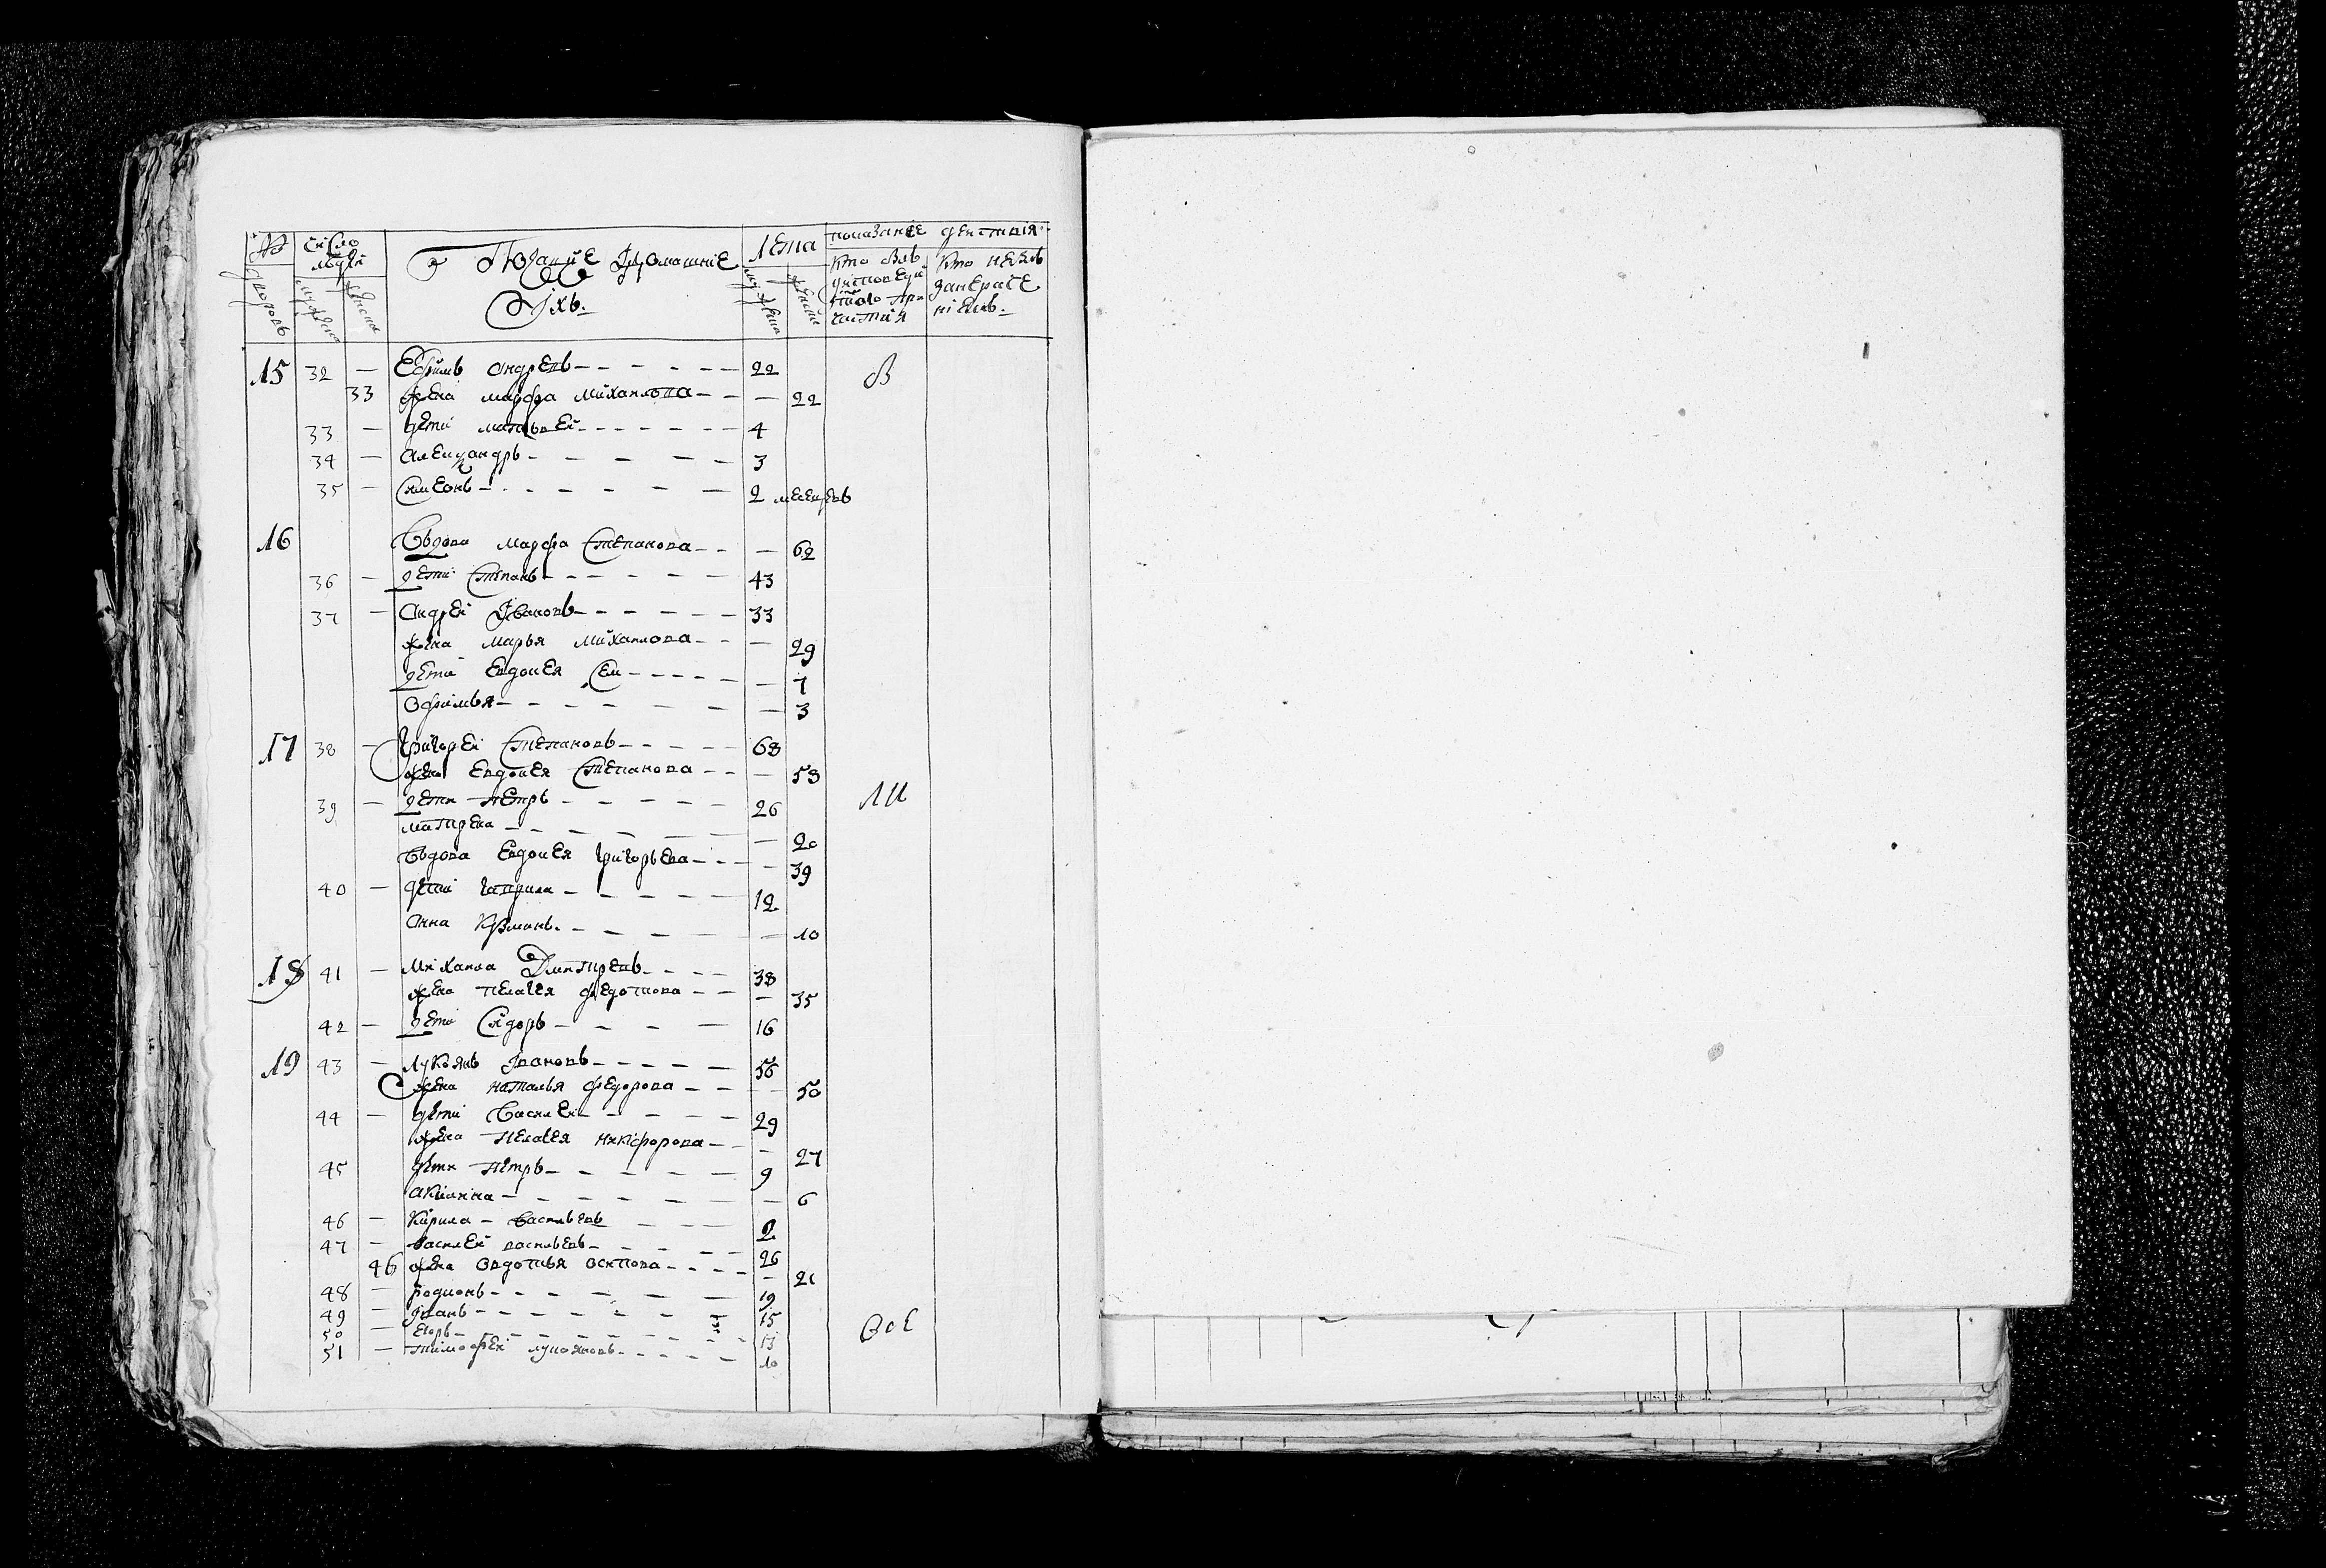 № число людей Людие Идомашние лета показание действия
дворовъ мужеска женска Ихъ. мужеска женска Кто былъ уисповеди и свтаго причастия Кто небылъ данерачение ниемъ.
15 32 — Ефимъ андревъ — — 22 В
33 жена марфа михаилова — — 22
33 — дети матьвей — — 4
34 — александръ — — 3
35 — симеонъ — — 2 месецевъ
16 Вьдова марфа степанова — — 62
36 — дети степанъ — — 43
37 — андрей Ивановъ — — 33
жена марья михаилова — — 29
дети евдокея — — 7
офимья — — 3
17 38 — григорей степановъ — — 68
жена евдокея степанова — — 53
39 — дети петръ — — 26 ли
матирена — — 20
вьдова евдокея григорьева — — 39
40 — дети гаврила — — 12
анна — — 10
18 41 — михаила Дмитиревъ — — 38
жена пелагея федотова — — 35
42 — дети сидоръ — — 16
19 43 — лукоянъ Ивановъ — — 56
жена наталья федорова — — 50
44 — дети василей — — 29
жена пелагея никифорова — — 27
45 дети петръ — — 9
акилина — — 6
46 — кирила — васильевъ — — 2
47 — василей васильевъ — — 26
46 жена овдотья осипова — — 21
48 — родионъ — — 19
49 — иванъ — — 15 все
50 — егоръ — — 13
51 — тимофей лукояновъ — — 10